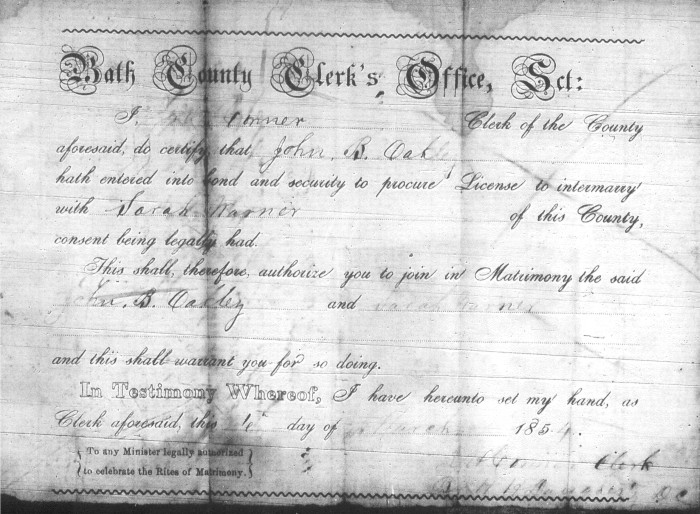 Bath County Clerk's Office, Sct:
I, Conner Clerk of the County
aforesaid, do certify, that John. B. Oakl
hath entered into bond and security to procure License to intermarry
with Sarah Warner of this County,
consent being legally had.
This shall, therefore, authorize you to join in Matrimony the said
John. B. Oakley and Sarah Warner
and this shall warrant you for so doing.
In Testimony Whereof, I have hereunto set my hand, as
Clerk aforesaid, this day of 1854.
To any Minister legally authorized
to celebrate the Rites of Matrimony.
Clerk